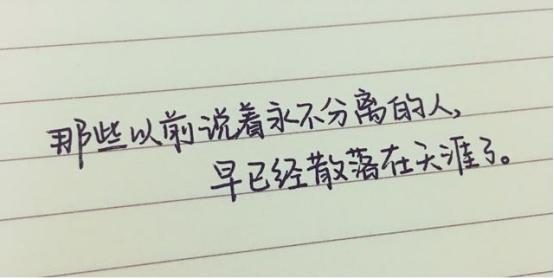 那些以前说着永不分离的人，
早已经散落在天涯了。